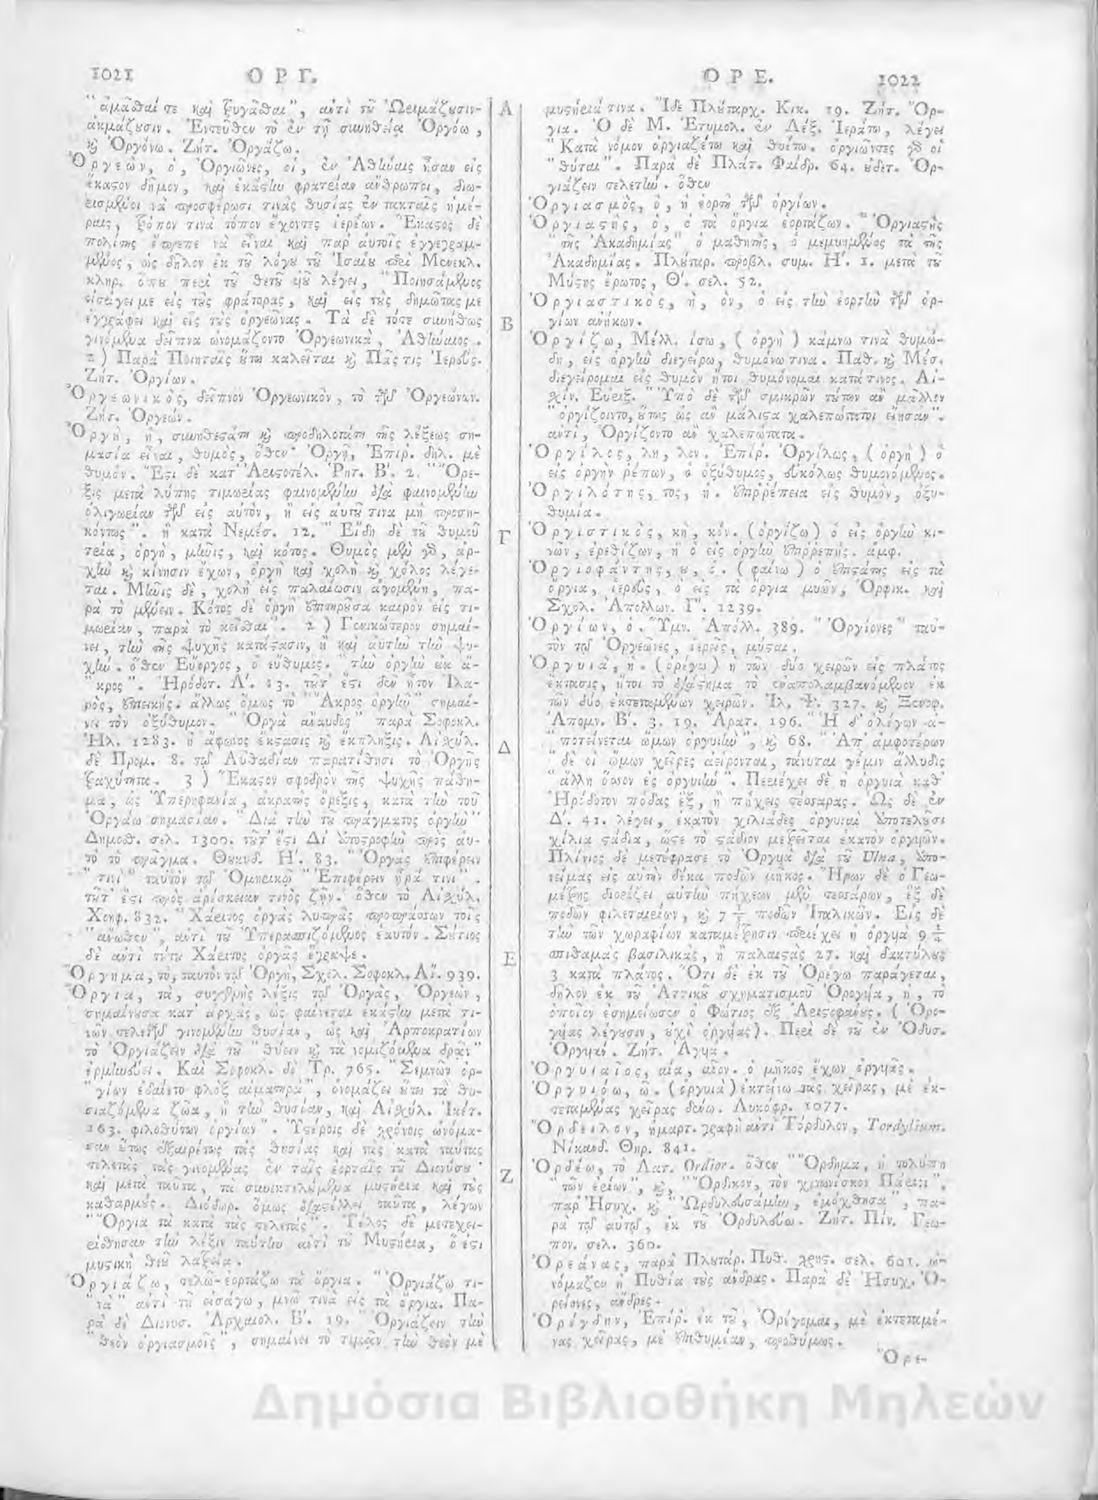 1021 ΟΡΓ.
ἁμᾶσθαί τε καὶ τρυγᾶσθαι", αὐτὶ τοῦ Ὡριμάζουσιν-
ἀκμάζουσιν. Ἐντεῦθεν τὸ ἐν τῇ συνηθείᾳ Ὀργόω,
καὶ Ὀργόνω. Ζήτ. Ὀργάζω.
Ὀργεὼν, ὁ, Ὀργιῶνες, οἱ, ἐν Ἀθήναις ἦσαν εἰς
ἕκαστον δῆμον, καὶ ἑκάστην φρατρείαν ἄνθρωποι, διω-
ρισμένοι νὰ προσφέρωσι τινὰς θυσίας ἐν τακταῖς ἡμέ-
ραις, τρόπον τινὰ τόπον ἔχοντες ἱερέων. Ἕκαστος δὲ
πολίτης ἔπρεπε νὰ εἶναι καὶ παρ' αὐτοῖς ἐγγεγραμ-
μένος, ὡς δῆλον ἐκ τοῦ λόγου τοῦ Ἰσαίου περὶ Μενεκλ.
κληρ. ὅπου περὶ τοῦ θετοῦ υἱοῦ λέγει, "Ποιησάμενος
εἰσάγει με εἰς τοὺς φράτορας, καὶ εἰς τοὺς δημώτας με
ἐγγράφει καὶ εἰς τοὺς ὀργεῶνας. Τὰ δὲ τότε συνήθως
γινόμενα δεῖπνα ὠνομάζοντο Ὀργεωνικὰ, Ἀθήναιος.
2) Παρὰ Ποιηταῖς οὕτω καλεῖται καὶ Πᾶς τις Ἱερεύς.
Ζήτ. Ὀργίων.
Ὀργεωνικὸς, δεῖπνον Ὀργεωνικὸν, τὸ τῶν Ὀργεώνων.
Ζήτ. Ὀργεών.
Ὀργὴ, ἡ, συνηθεστάτη καὶ προδηλοτάτη τῆς λέξεως ση-
μασία εἶναι, θυμὸς, ὅθεν Ὀργῇ, Ἐπιρ. δηλ. μὲ
θυμόν. Ἔστι δὲ κατ' Ἀριστοτέλ. Ῥητ. Β'. 2. "Ὄρε-
ξις μετὰ λύπης τιμωρίας φαινομένης διὰ φαινομένην
ὀλιγωρίαν τῶν εἰς αὐτὸν, ἢ εἰς αὐτοῦ τινα μὴ προση-
κόντως". ἢ κατὰ Νεμέσ. 12. "Εἴδη δὲ τοῦ θυμοῦ
τρία, ὀργὴ, μῆνις, καὶ κότος. Θυμὸς μὲν γὰρ, ἀρ-
χὴν καὶ κίνησιν ἔχων, ὀργὴ καὶ χολὴ καὶ χόλος λέγε-
ται. Μῆνις δὲ, χολὴ εἰς παλαίωσιν ἀγομένη, πα-
ρὰ τὸ μένειν. Κότος δὲ ὀργὴ ἐπιτηροῦσα καιρὸν εἰς τι-
μωρίαν, παρὰ τὸ κεῖσθαι". 2) Γενικώτερον σημαί-
νει, τὴν τῆς ψυχῆς κατάστασιν, ἢ καὶ αὐτὴν τὴν ψυ-
χήν. ὅθεν Εὔοργος, ὁ εὔθυμος. "τὴν ὀργὴν οὐκ ἄ-
κρος". Ἡρόδοτ. Α'. 73. τοῦτ' ἔστι δὲν ἦτον Ἱλα-
ρὸς, ἐπιεικής. ἄλλως ὅμως τὸ "Ἄκρος ὀργὴν" σημαί-
νει τὸν ὀξύθυμον. "Ὀργὰ ἄναυδος" παρὰ Σοφοκλ.
Ἠλ. 1283. ἡ ἄφωνος ἔκστασις καὶ ἔκπληξις. Αἰσχύλ.
δὲ Προμ. 8. τῷ Αὐθαδίαν παρατίθησι τὸ Ὀργῆς
τραχύτητα. 3) Ἕκαστον σφοδρὸν τῆς ψυχῆς πάθη-
μα, ὡς Ὑπερηφανία, ἀκρατὴς ὄρεξις, κατὰ τὴν τοῦ
Ὀργάω σημασίαν. "Διὰ τὴν τοῦ πράγματος ὀργὴν"
Δημοσθ. σελ. 1300. τοῦτ' ἔστι Δι' ἀποστροφὴν πρὸς αὐ-
τὸ τὸ πρᾶγμα. Θουκυδ. Η'. 83. "Ὀργὰς ἐπιφέρειν
τινὶ" ταὐτὸν τῷ Ὁμηρικῷ "Ἐπιφέρειν ἦρά τινι".
τοῦτ' ἔστι πρὸς ἀρέσκειαν τινὸς ζῆν. ὅθεν τὸ Αἰσχύλ.
ἀντὶ τοῦ Ὑπερασπιζόμενος ἑαυτόν.
δὲ ἀντὶ τούτου Χάριτος ὀργὰς ἔγραψε.
Ὄργημα, τὸ, ταὐτὸν τῷ Ὀργὴ, Σχόλ. Σοφοκλ. Αἴ. 939.
Ὄργια, τὰ, συγγενὴς λέξις τῷ Ὀργὰς, Ὀργεών,
σημαίνουσα κατ' ἀρχὰς, ὡς φαίνεται ἑκάστην μετὰ τι-
νῶν τελετῶν γινομένην θυσίαν, ὡς καὶ Ἁρποκρατίων
τὸ Ὀργιάζειν διὰ τοῦ "θύειν καὶ τὰ νομιζόμενα δρᾷν"
ἑρμηνεύει. Καὶ Σοφοκλ. δὲ Τρ. 765. "Σεμνῶν ὀρ-
γίων ἐδαίετο φλὸξ αἱματηρὰ", ὀνομάζει οὕτω τὰ θυ-
σιαζόμενα ζῶα, ἢ τὴν θυσίαν, καὶ Αἰσχύλ. Ἱκέτ.
163. φιλοθύτων ὀργίων". Ὑστέροις δὲ χρόνοις ὠνόμα-
σαν οὕτως ἐξαιρέτως τὰς θυσίας καὶ τὰς κατὰ ταύτας
τελετὰς τὰς γινομένας ἐν ταῖς ἑορταῖς τοῦ Διονύσου·
καὶ μετὰ ταῦτα, τὰ συνεκτελούμενα μυστήρια καὶ τοὺς
καθαρμούς. Διόδωρ. ὅμως διαστέλλει ταῦτα, λέγων
"Ὄργια τὰ κατὰ τὰς τελετάς". Τέλος δὲ μετεχει-
ρίσθησαν τὴν λέξιν ταύτην ἀντὶ τοῦ Μυστήρια, ὅ ἐστι
μυστικὴ θεία λατρεία.
Ὀργιάζω, τελῶ-ἑορτάζω τὰ ὄργια. "Ὀργιάζω τι-
νὰ" ἀντὶ τοῦ εἰσάγω, μυῶ τινὰ εἰς τὰ ὄργια. Πα-
ρὰ δὲ Διονυσ. Ἀρχαιολ. Β'. 19. "Ὀργιάζειν τὴν
θεὸν ὀργιασμοῖς", σημαίνει τὸ τιμᾷν τὴν θεὸν μὲ
Α
Β
Γ
Δ
Ε
Ζ
ΟΡΕ. 1022
μυστήρια τινα. Ἴδε Πλούταρχ. Κικ. 19. Ζήτ. Ὄρ-
για. Ὁ δὲ Μ. Ἐτυμολ. ἐν Λέξ. Ἱεράπω, λέγει
"Κατὰ νόμον ὀργιαζέτω καὶ θυέτω. ὀργιῶντες γὰρ οἱ
θύται". Παρὰ δὲ Πλάτ. Φαίδρ. 64. οὐδετ. Ὀρ-
γιάζειν τελετήν. ὅθεν
Ὀργιασμὸς, ὁ, ἡ ἑορτὴ τῶν ὀργίων.
Ὀργιαστὴς, ὁ, ὁ τὰ ὄργια ἑορτάζων. "Ὀργιαστὴς
τῆς Ἀκαδημίας" ὁ μαθητὴς, ὁ μεμυημένος τὰ τῆς
Ἀκαδημίας. Πλουταρ. προβλ. συμ. Η'. 1. μετὰ τοῦ
Μύστης ἔρωτος, Θ'. σελ. 52.
Ὀργιαστικὸς, ἡ, ὸν, ὁ εἰς τὴν ἑορτὴν τῶν ὀρ-
γίων ἀνήκων.
Ὀργίζω, Μέλλ. ίσω, (ὀργὴ) κάμνω τινὰ θυμώ-
δη, εἰς ὀργὴν διεγείρω, θυμόνω τινα. Παθ. καὶ Μέσ.
διεγείρομαι εἰς θυμὸν ἤτοι θυμόνομαι κατά τινος. Αἰ-
σχίν. Ἐυριξ. "Ὑπὸ δὲ τῶν σμικρῶν τούτων ἂν μᾶλλον
ὀργίζοιντο, οὕτως ὡς ἂν μάλιστα χαλεπώτατοι εἴησαν".
ἀντὶ, Ὀργίζοντο ἂν χαλεπώτατα.
Ὀργίλος, λη, λον. Ἐπίρ. Ὀργίλως, (ὀργὴ) ὁ
εἰς ὀργὴν ῥέπων, ὁ ὀξύθυμος, εὐκόλως θυμονόμενος.
Ὀργιλότης, τος, ἡ. ἐπιρρέπεια εἰς θυμὸν, ὀξυ-
θυμία.
Ὀργιστικὸς, κὴ, κόν. (ὀργίζω) ὁ εἰς ὀργὴν κι-
νῶν, ἐρεθίζων, ἢ ὁ εἰς ὀργὴν ἐπιρρεπής. ἀμφ.
Ὀργιοφάντης, ου, ὁ. (φαίνω) ὁ ἐπιστάτης εἰς τὰ
ὄργια, ἱερεὺς, ὁ εἰς τὰ ὄργια μυῶν, Ὀρφικ. καὶ
Σχολ. Ἀπολλων. Γ'. 1239.
Ὀργίων, ὁ. Ὕμν. Ἀπόλλ. 389. "Ὀργίονες" ταὐ-
τὸν τῷ Ὀργεῶνες, ἱερεῖς, μύσται.
Ὀργυιὰ, ἡ. (ὀρέγω) ἡ τῶν δύο χειρῶν εἰς πλάτος
ἔκτασις, ἤτοι τὸ διάστημα τὸ ἐναπολαμβανόμενον ἐκ
τῶν δύο ἐκτεταμένων χειρῶν. Ἰλ. Ψ. 327. καὶ Ξενοφ.
Ἀπομν. Β'. 3. 19. Ἄρατ. 196. "Ἡ δ' ὀλίγων ἀ-
ποτείνεται ὤμων ὀργυιὴν", καὶ 68. "Ἀπ' ἀμφοτέρων
δὲ οἱ ὤμων χεῖρες ἀείρονται, τάνυται γέμιν ἄλλυδις
ἄλλη ὅσσον ἐς ὀργυιήν". Περιέχει δὲ ἡ ὀργυιὰ καθ'
Ἡρόδοτον πόδας ἓξ, ἢ πήχεις τέσσαρας. Ὡς δὲ ἐν
Δ'. 41. λέγει, ἑκατὸν χιλιάδες ὀργυιαὶ ἀποτελοῦσι
χίλια στάδια, ὥστε τὸ στάδιον μετρεῖται ἑκατὸν ὀργυιῶν.
Πλίνιος δὲ μετέφρασε τὸ Ὀργυιὰ διὰ τοῦ Ulna, ἀπο-
τείμας εἰς αὐτὴν δέκα ποδῶν μῆκος. Ἥρων δὲ ὁ Γεω-
μέτρης διορίζει αὐτὴν πήχεων μὲν τεσσάρων, ἓξ δὲ
ποδῶν φιλεταιρείων, καὶ 7 1/5 ποδῶν Ἰταλικῶν. Εἰς δὲ
τὴν τῶν χωραφίων καταμέτρησιν περιέχει ἡ ὀργυιὰ 9 1/4
σπιθαμὰς βασιλικὰς, ἢ παλαιστὰς 27. καὶ δακτύλους
3 κατὰ πλάτος. Ὅτι δὲ ἐκ τοῦ Ὀρέγω παράγεται,
δῆλον ἐκ τοῦ Ἀττικοῦ σχηματισμοῦ Ὀρόγυια, ἡ, τὸ
ὁποῖον ἐσημείωσεν ὁ Φώτιος ἐξ Ἀριστοφάνους. (Ὀρο-
γυίας λέγουσιν, οὐχὶ ὀργυίας). Περὶ δὲ τοῦ ἐν Ὀδυσ.
Ὀργυιὰν. Ζήτ. Ἄγυια.
Ὀργυιαῖος, αία, αῖον. ὁ μῆκος ἔχων ὀργυιᾶς.
Ὀργυιόω, ῶ. (ὀργυιὰ) ἐκτείνω τὰς χεῖρας, μὲ ἐκ-
τεταμένας χεῖρας δένω. Λυκόφρ. 1077.
Ὄρδειλον, ἡμαρτ. γραφὴ ἀντὶ Τόρδυλον, Tordylium.
Νίκανδ. Θηρ. 841.
Ὀρδέω, τὸ Λατ. Ordior. ὅθεν "Ὄρδημα, ἡ τολύπη
τῶν ἐρίων", καὶ, "Ὄρδικον, τὸν χιτωνίσκον Πάριοι".
παρ' Ἡσυχ. καὶ "Ὠρδυλευσάμην, ἐμόχθησα", πα-
ρὰ τῷ αὐτῷ, ἐκ τοῦ Ὀρδυλεύω. Ζήτ. Πίν. Γεω-
πον. σελ. 360.
Ὀρεάνας, παρὰ Πλουτάρ. Πυθ. χρησ. σελ. 601. ὠ-
νόμαζεν ἡ Πυθία τοὺς ἄνδρας. Παρὰ δὲ Ἡσυχ. Ὀ-
ρείονες, ἄνδρες.
Ὀρέγδην, Ἐπίρ. ἐκ τοῦ, Ὀρέγομαι, μὲ ἐκτεταμέ-
νας χεῖρας, μὲ ἐπιθυμίαν, προθύμως.
Ὀρε-
Δημόσια Βιβλιοθήκη Μηλεών